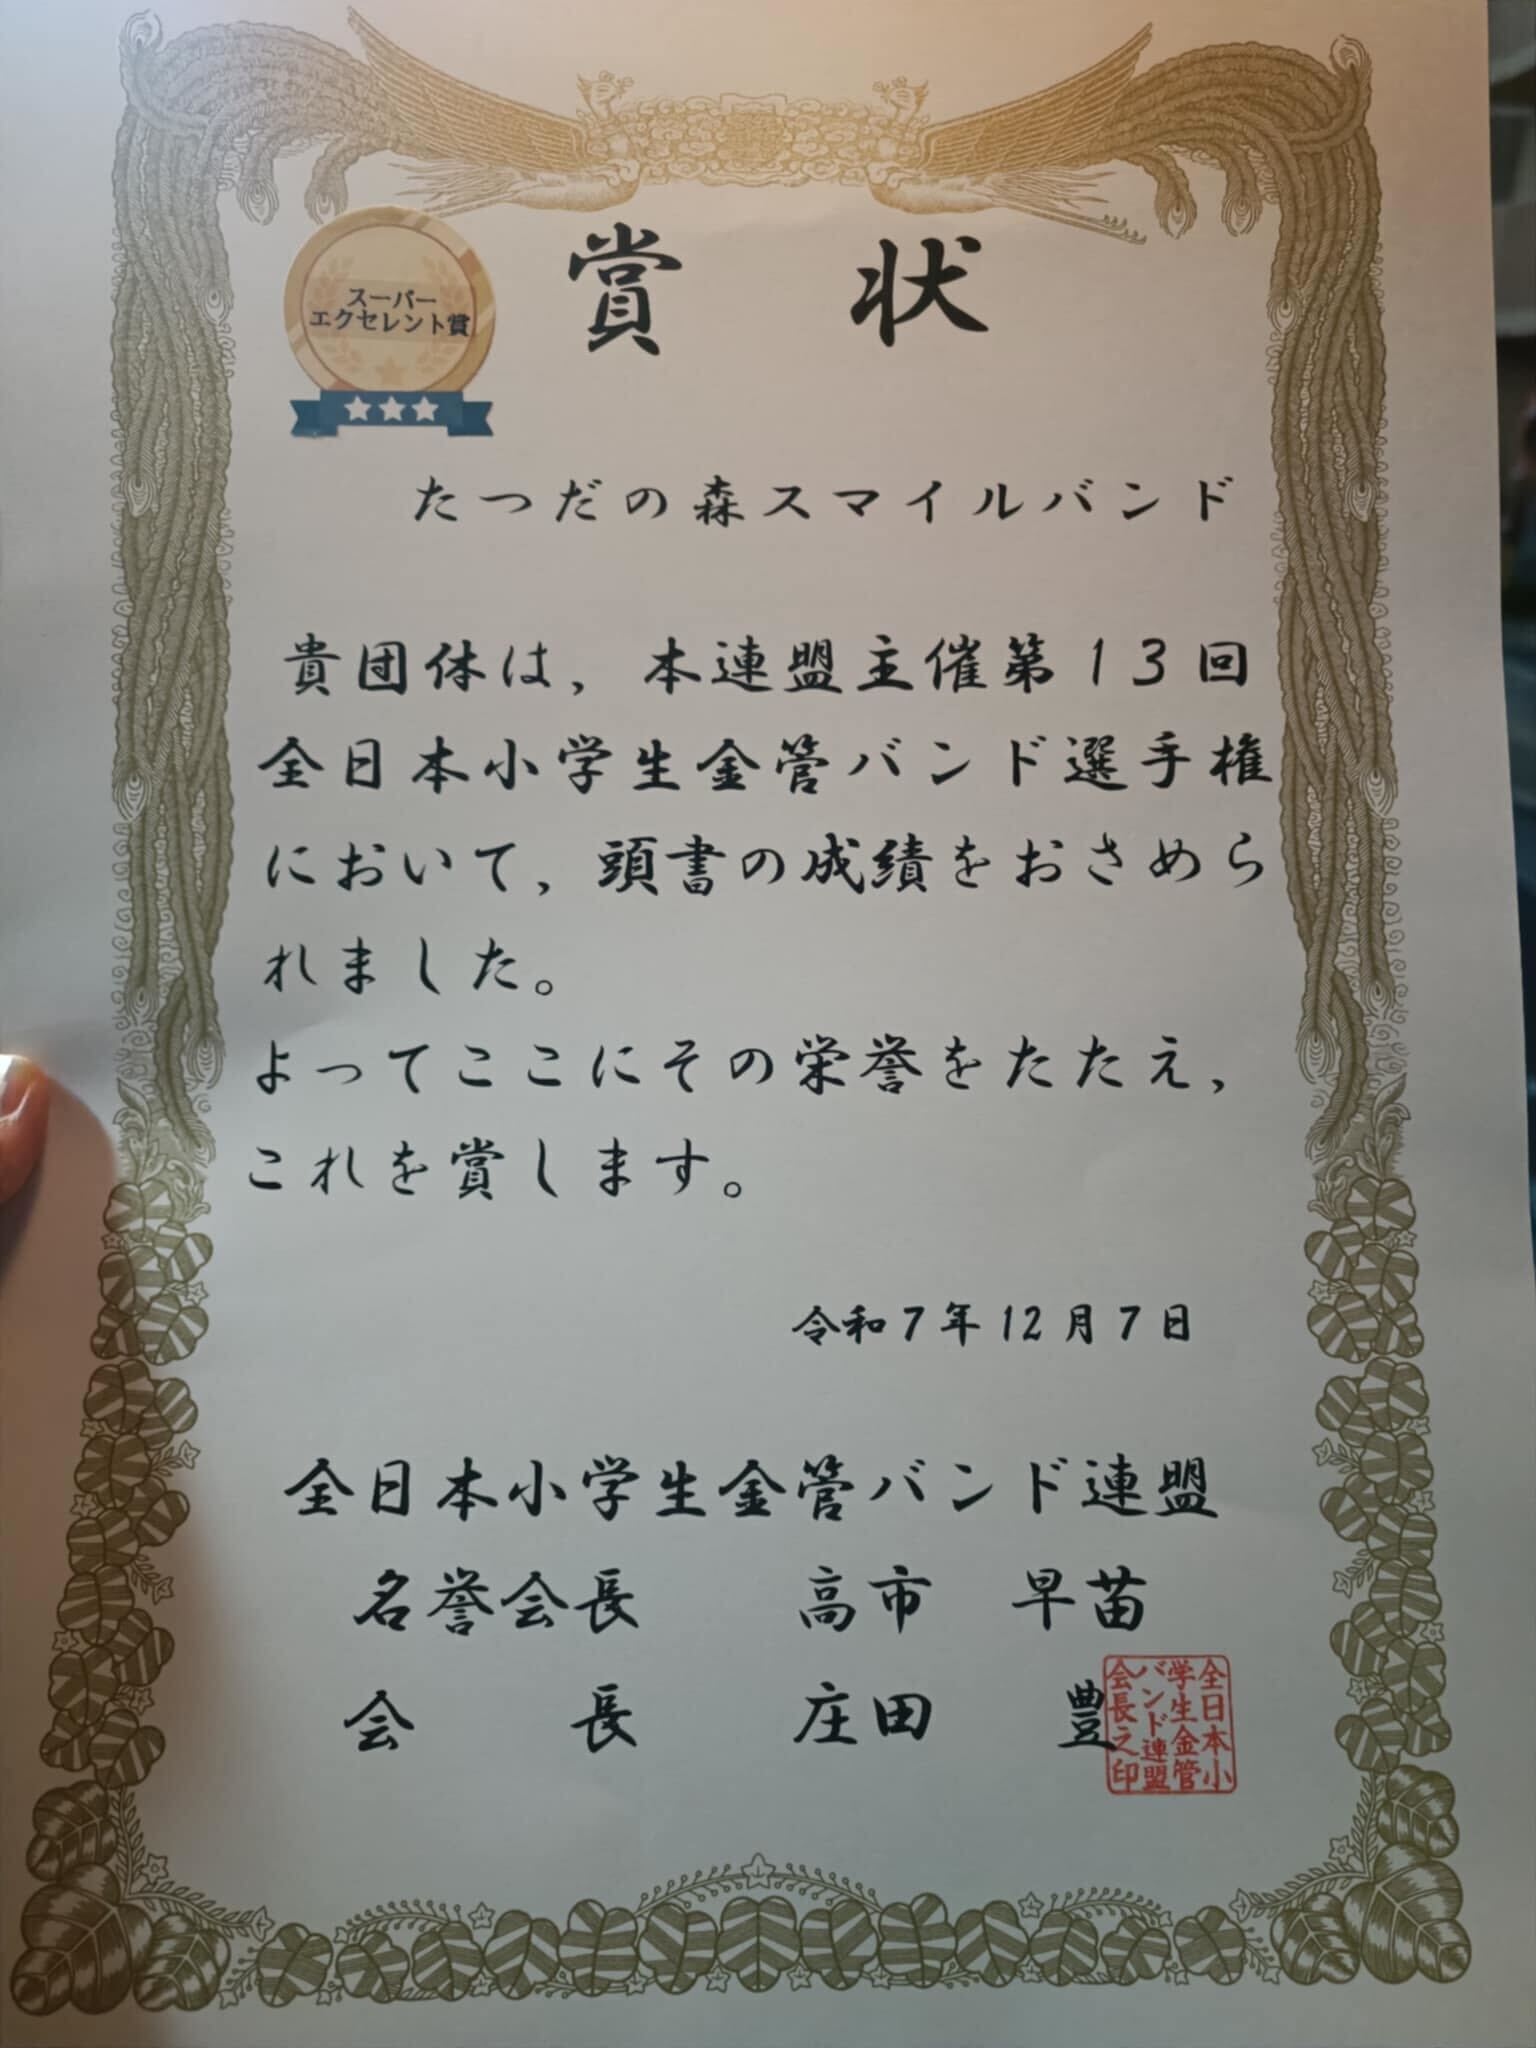 賞状
スーパー
エクセレント賞
たつだの森スマイルバンド
貴団体は，本連盟主催第１３回
全日本小学生金管バンド選手権
において，頭書の成績をおさめら
れました。
よってここにその栄誉をたたえ，
これを賞します。
令和７年１２月７日
全日本小学生金管バンド連盟
名誉会長　高市　早苗
会長　庄田　豊
全日本小
学生金管
バンド連盟
会長之印